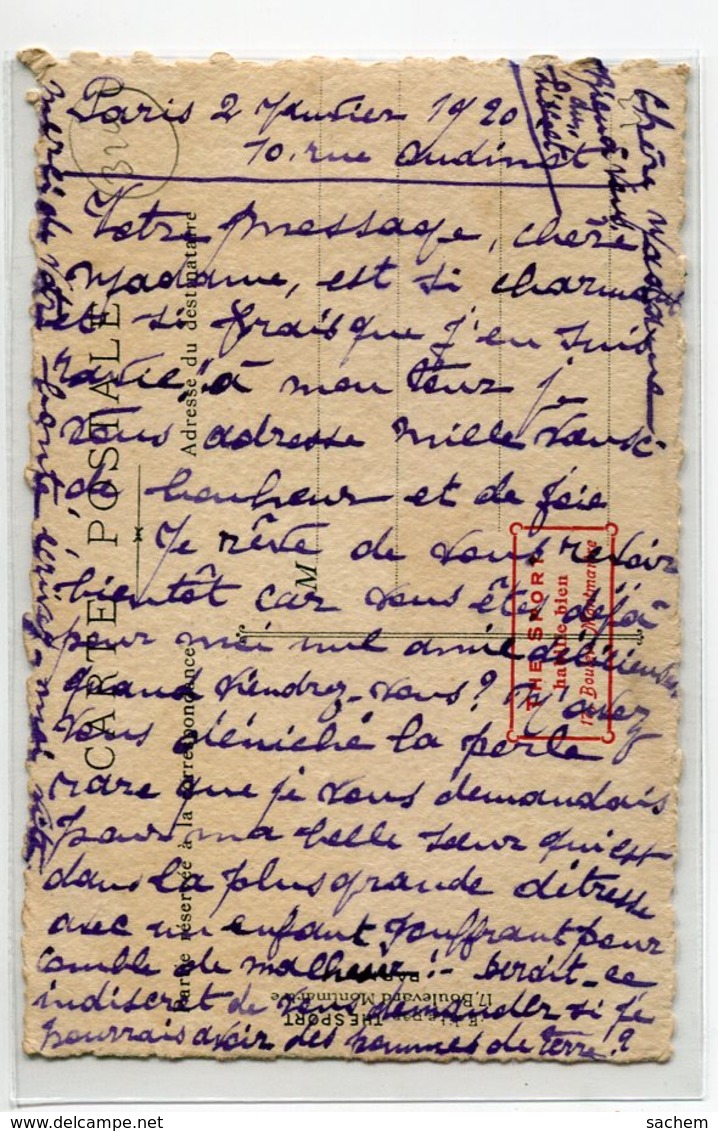 Paris 2 Janvier 1920
10, rue Oudinot
Votre message, chère
Madame, est si charmant
et si frais que j'en suis
ravie, à mon tour je
vous adresse mille vœux
de bonheur et de joie
Je rêve de vous revoir
bientôt car vous êtes déjà
pour moi une amie délicieuse
quand viendrez-vous? N'avez
vous déniché la perle
rare que je vous demandais
pour ma belle sœur qui est
dans la plus grande détresse
avec un enfant souffrant pour
comble de malheur! - Serait-ce
indiscret de vous demander si je
pourrais avoir des pommes de terre?
merci de votre bonté, écrivez-moi vite
Chère Madame
CARTE POSTALE
Partie réservée à la correspondance
Adresse du destinataire
M
THE SPORT
habille bien
17, Boulevd Montmartre
THE SPORT
17, Boulevard Montmartre
PARIS
sachem
delcampe.net